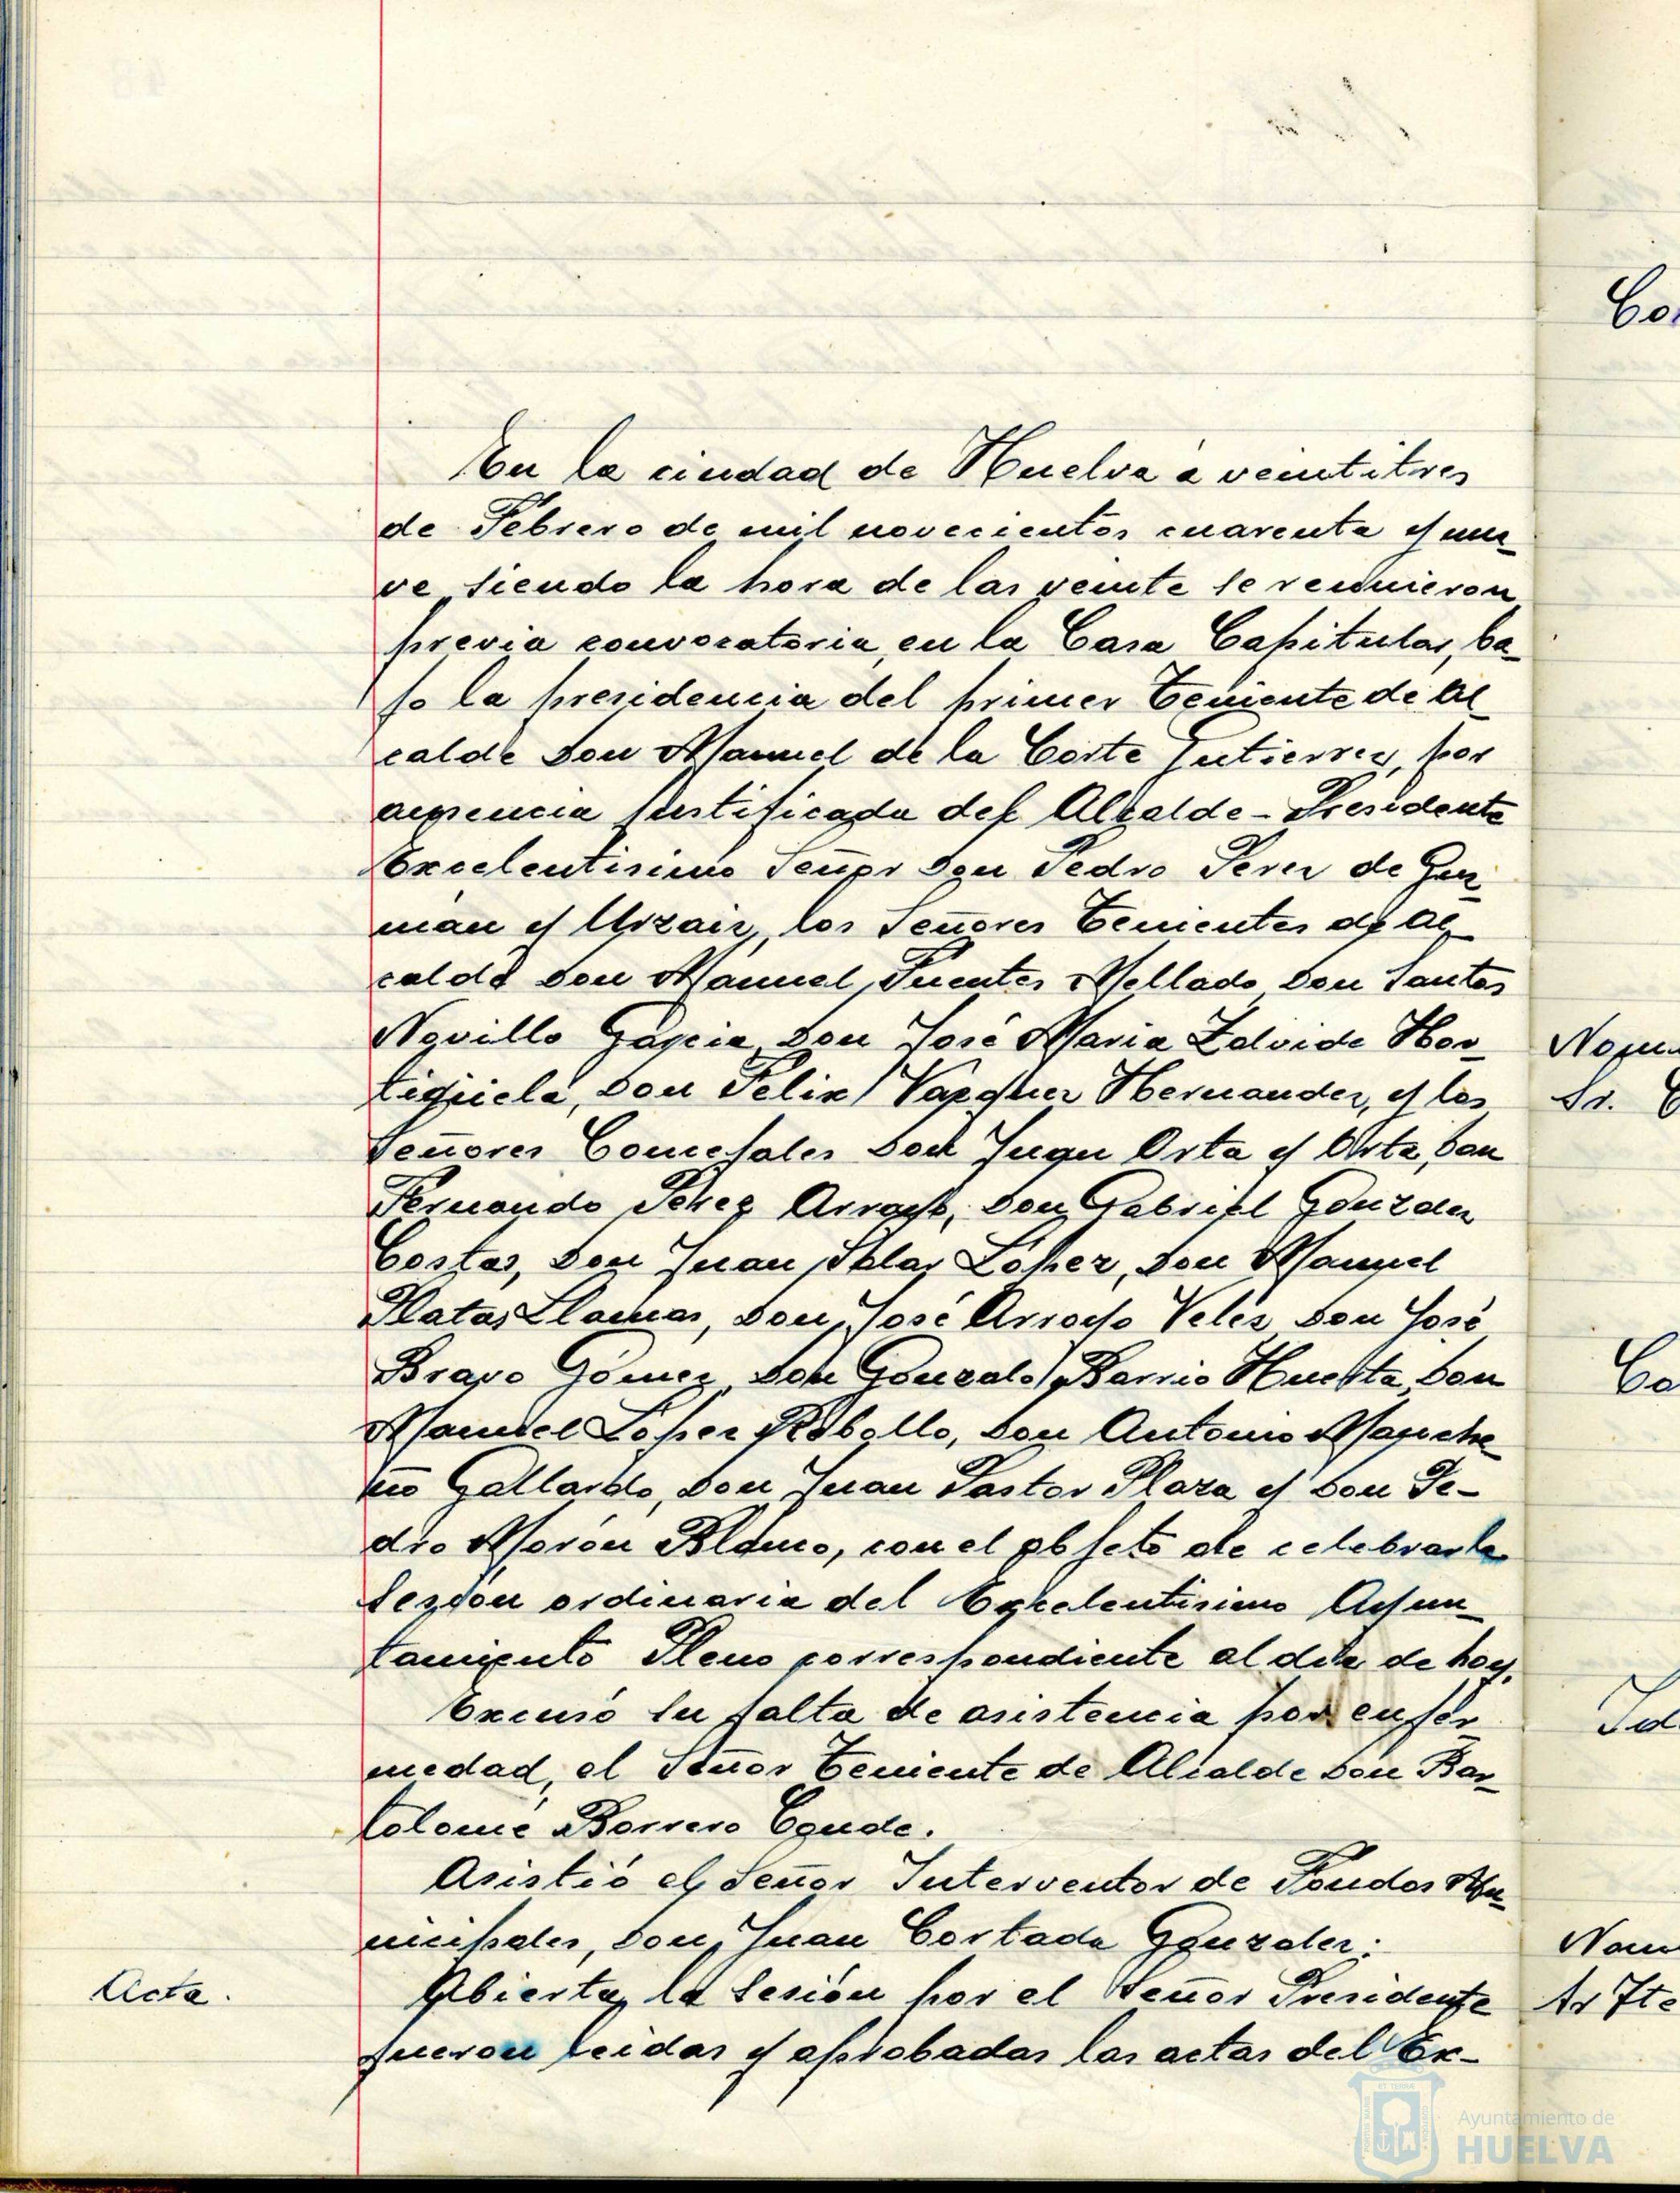 En la ciudad de Huelva a veintitres
de Febrero de mil novecientos cuarenta y nue-
ve, siendo la hora de las veinte se reunieron
previa convocatoria, en la Casa Capitular, ba-
jo la presidencia del primer Teniente de Al-
calde Don Manuel de la Corte Gutierrez, por
ausencia justificada del Alcalde-Presidente
Excelentisimo Señor Don Pedro Perez de Guz-
mán y Urzaiz, los Señores Tenientes de Al-
calde Don Manuel Fuentes Mellado, Don Santos
Novillo García, Don José Maria Zalvide Hor-
tigüela, Don Felix Vazquez Hernandez, y los
Señores Concejales Don Juan Orta y Orta, Don
Fernando Perez Arroyo, Don Gabriel González
Costas, Don Juan Salas López, Don Manuel
Platas Llamas, Don José Arroyo Velés, Don José
Bravo Gómez, Don Gonzalo Barrio Huerta, Don
Manuel López Rebollo, Don Antonio Manche-
ño Gallardo, Don Juan Pastor Plaza y Don Pe-
dro Morón Blanco, con el objeto de celebrar la
sesión ordinaria del Excelentisimo Ayun-
tamiento Pleno correspondiente al dia de hoy.
Excusó su falta de asistencia por enfer-
medad, el Señor Teniente de Alcalde Don Bar-
tolomé Borrero Conde.
Asistió el Señor Interventor de Fondos Mu-
nicipales, Don Juan Cortada González;
Acta.
Abierta la sesión por el Señor Presidente
fueron leidas y aprobadas las actas del Ex-
Co
Sr.
Co
Ayuntamiento de
HUELVA